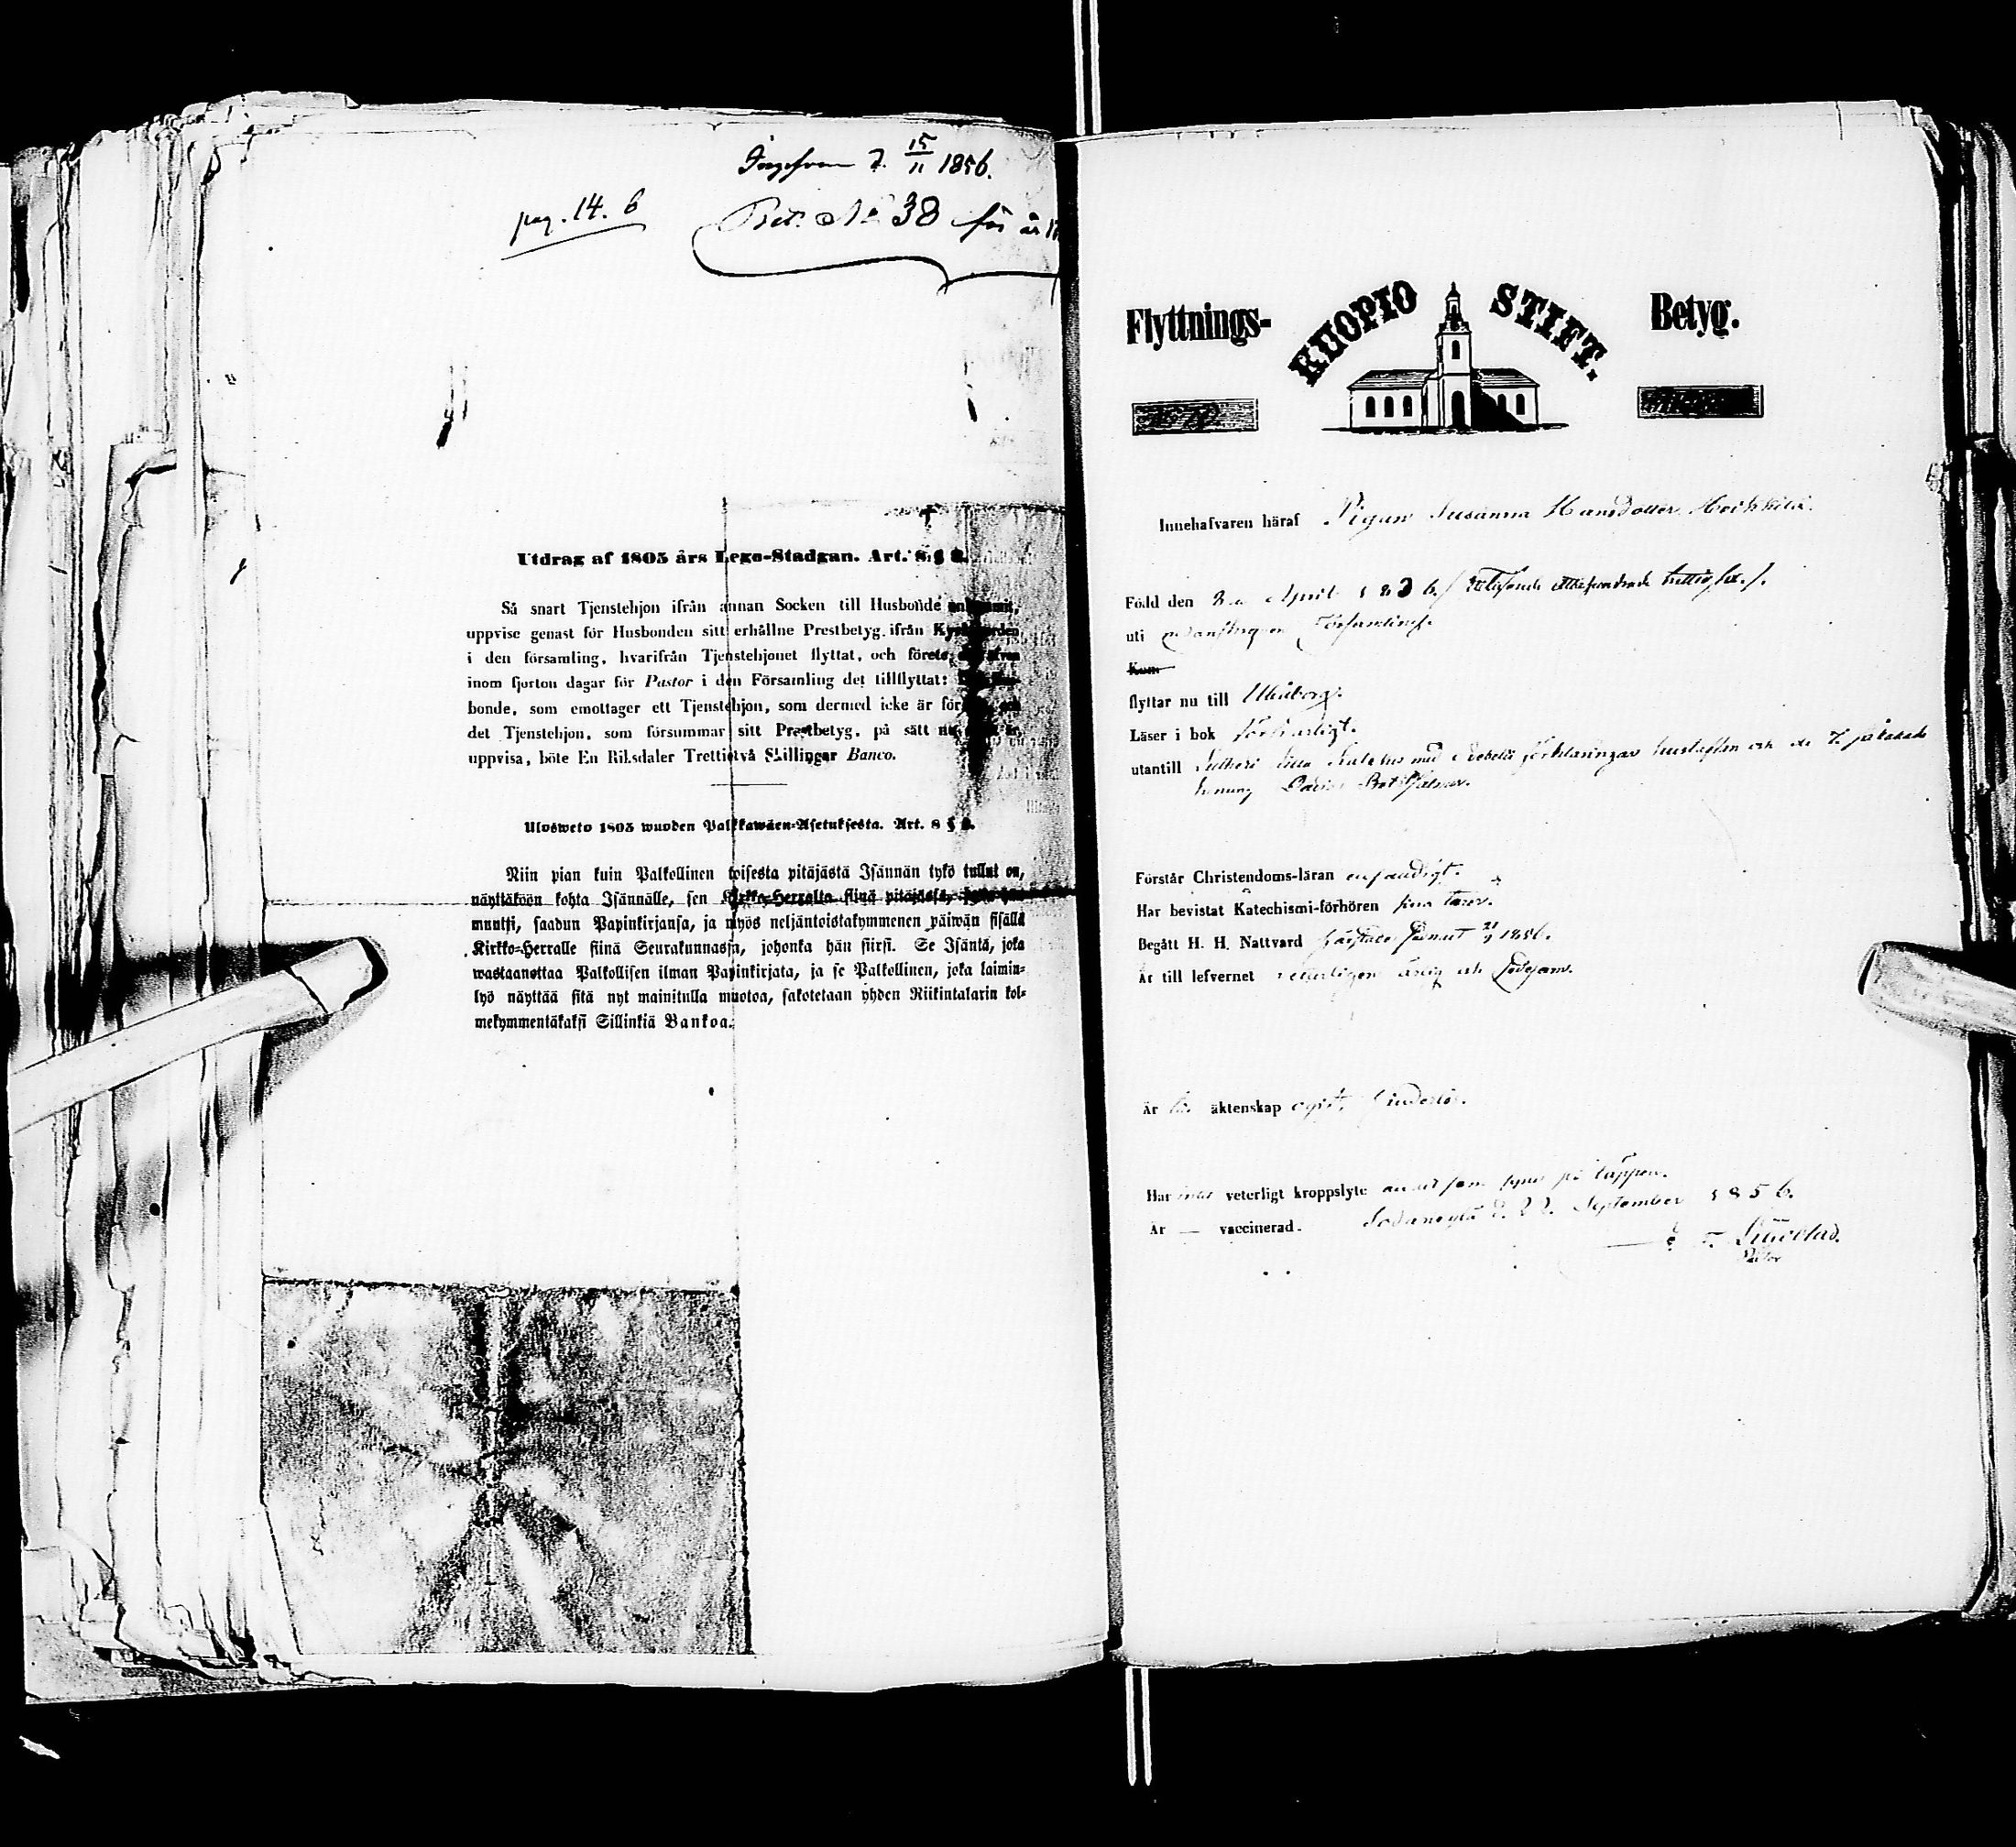 d. 15/11 1856.
pag. 14. b
Bet. No 38 för år
Utdrag af 1805 års Lego-Stadgan. Art. 8 § 2.
Så snart Tjenstehjon ifrån annan Socken till Husbonde
uppvise genast för Husbonden sitt erhållne Prestbetyg ifrån
i den församling, hvarifrån Tjenstehjonet flyttat, och
inom fjorton dagar för Pastor i den Församling det tillflyttat:
bonde, som emottager ett Tjenstehjon, som dermed icke är
det Tjenstehjon, som försummar sitt Prestbetyg, på sätt
uppvisa, böte En Riksdaler Trettiotvå Skillingar Banco.
Ulosweto 1805 wuoden Palkkawäen-Asetuksesta. Art. 8 § 2.
Niin pian kuin Palkollinen toisesta pitäjästä Isännän tykö tullut on,
näyttäköön kohta Isännälle, sen Kirkko-Herralta siinä pitäjässä,
muutti, saadun Papinkirjansa, ja myös neljäntoistakymmenen päiwän sisällä
Kirkko-Herralle siinä Seurakunnassa, johonka hän siirsi. Se Isäntä, joka
wastaanottaa Palkollisen ilman Papinkirjata, ja se Palkollinen, joka laimin-
lyö näyttää sitä nyt mainitulla muotoa, sakotetaan yhden Riikintalarin kol-
mekymmentäkaksi Sillinkiä Bankoa.
Flyttnings- KUOPIO STIFT. Betyg.
Innehafvaren häraf Pigan Susanna Hansdotter
Född den April 1836
uti Församling.
Kom
flyttar nu till Uleåborg.
Läser i bok försvarligt.
utantill Lutheri lilla med förklaringar hustaflan och de 7
Davids Botpsalmer.
Förstår Christendoms-läran enfaldigt.
Har bevistat Katechismi-förhören sina
Begått H. H. Nattvard 21/9 1856.
Är till lefvernet ärlig och
Är till äktenskap
Har intet veterligt kroppslyte annat som synes på läppen.
Är — vaccinerad. Sodankylä d. 22 September 1856.
Pastor